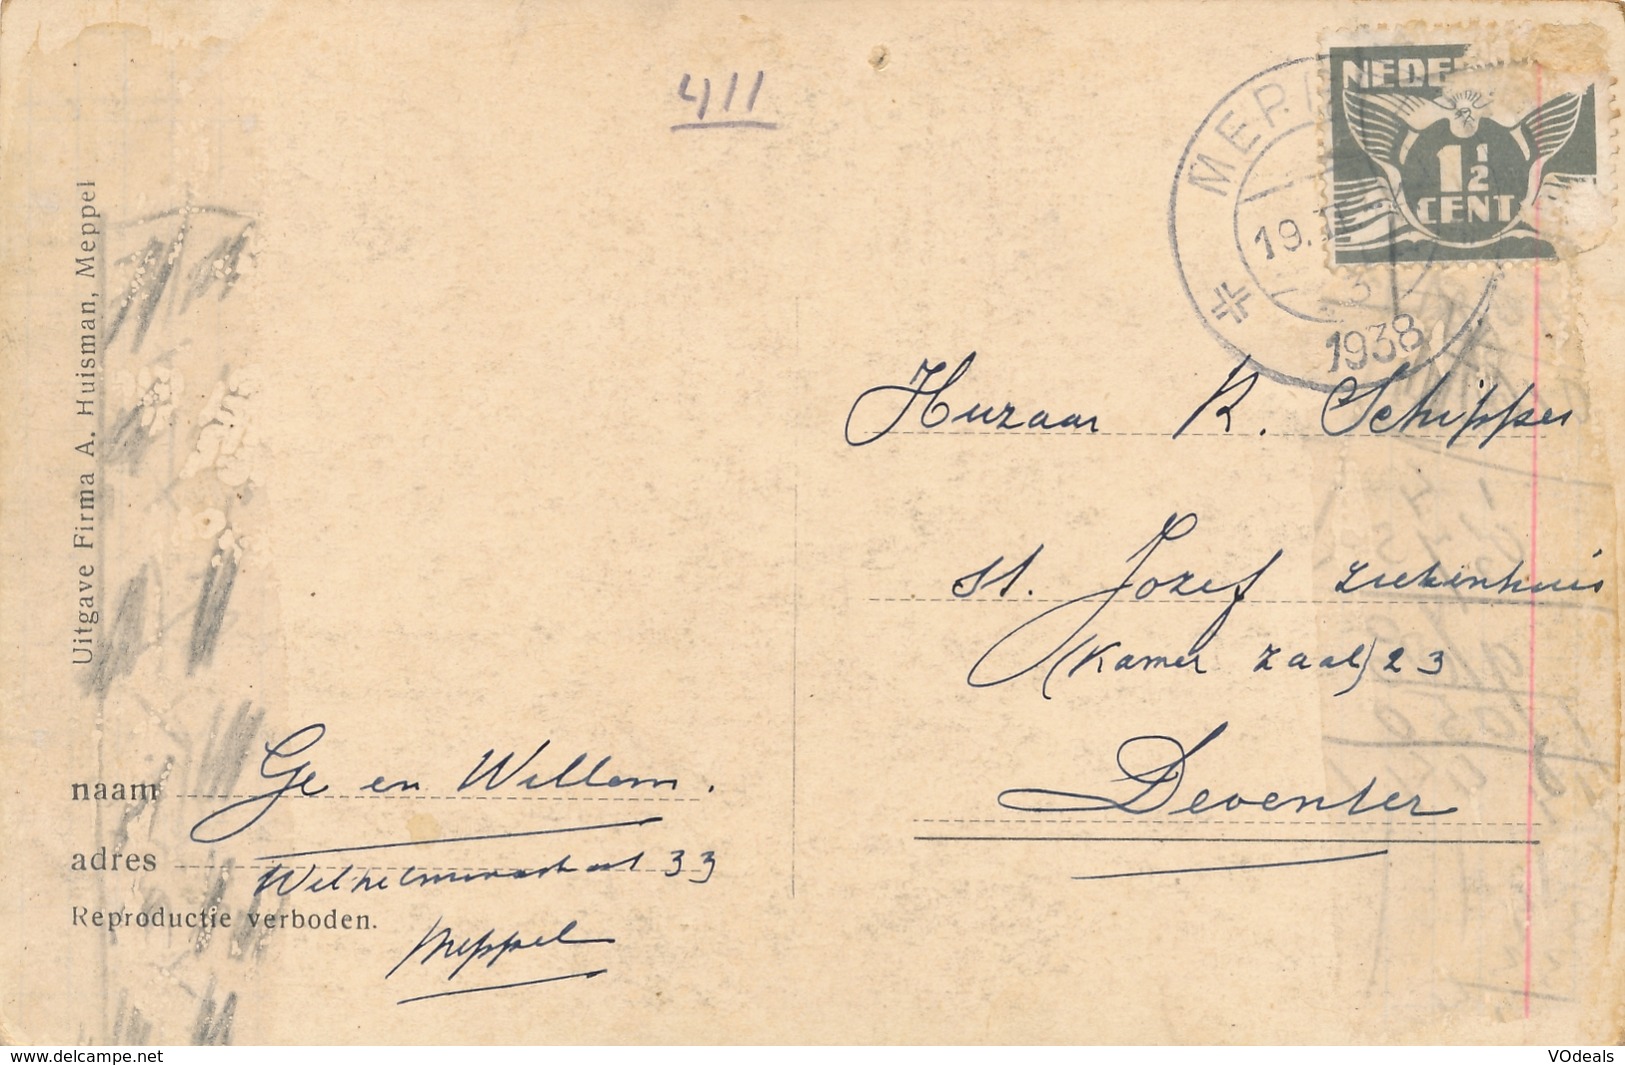 411
NEDE
1½
CENT
MEP
19.
3
1938
Uitgave Firma A. Huisman, Meppel
Huzaar R. Schipper
St. Jozef Ziekenhuis
(Kamer zaal) 23
Deventer
naam Ge en Willem.
adres Wilhelminastraat 33
Reproductie verboden.
Meppel
www.delcampe.net
VOdeals